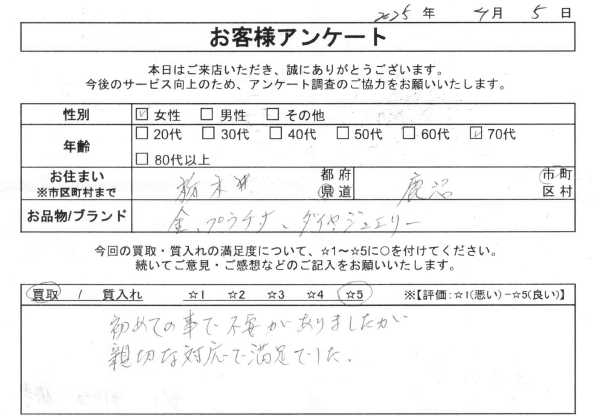 2025 年 4 月 5 日
お客様アンケート
本日はご来店いただき、誠にありがとうございます。
今後のサービス向上のため、アンケート調査のご協力をお願いいたします。
性別 ☑ 女性 □ 男性 □ その他
年齢 □ 20代 □ 30代 □ 40代 □ 50代 □ 60代 ☑ 70代
□ 80代以上
お住まい ※市区町村まで 栃木 都 府 県 道 鹿沼 市・町 区 村
お品物/ブランド 金、プラチナ、ダイヤジュエリー
今回の買取・質入れの満足度について、☆1～☆5に○を付けてください。
続いてご意見・ご感想などのご記入をお願いいたします。
買取 / 質入れ ☆1 ☆2 ☆3 ☆4 ☆5 ※【評価:☆1(悪い)−☆5(良い)】
初めての事で不安がありましたが
親切な対応で満足でした。